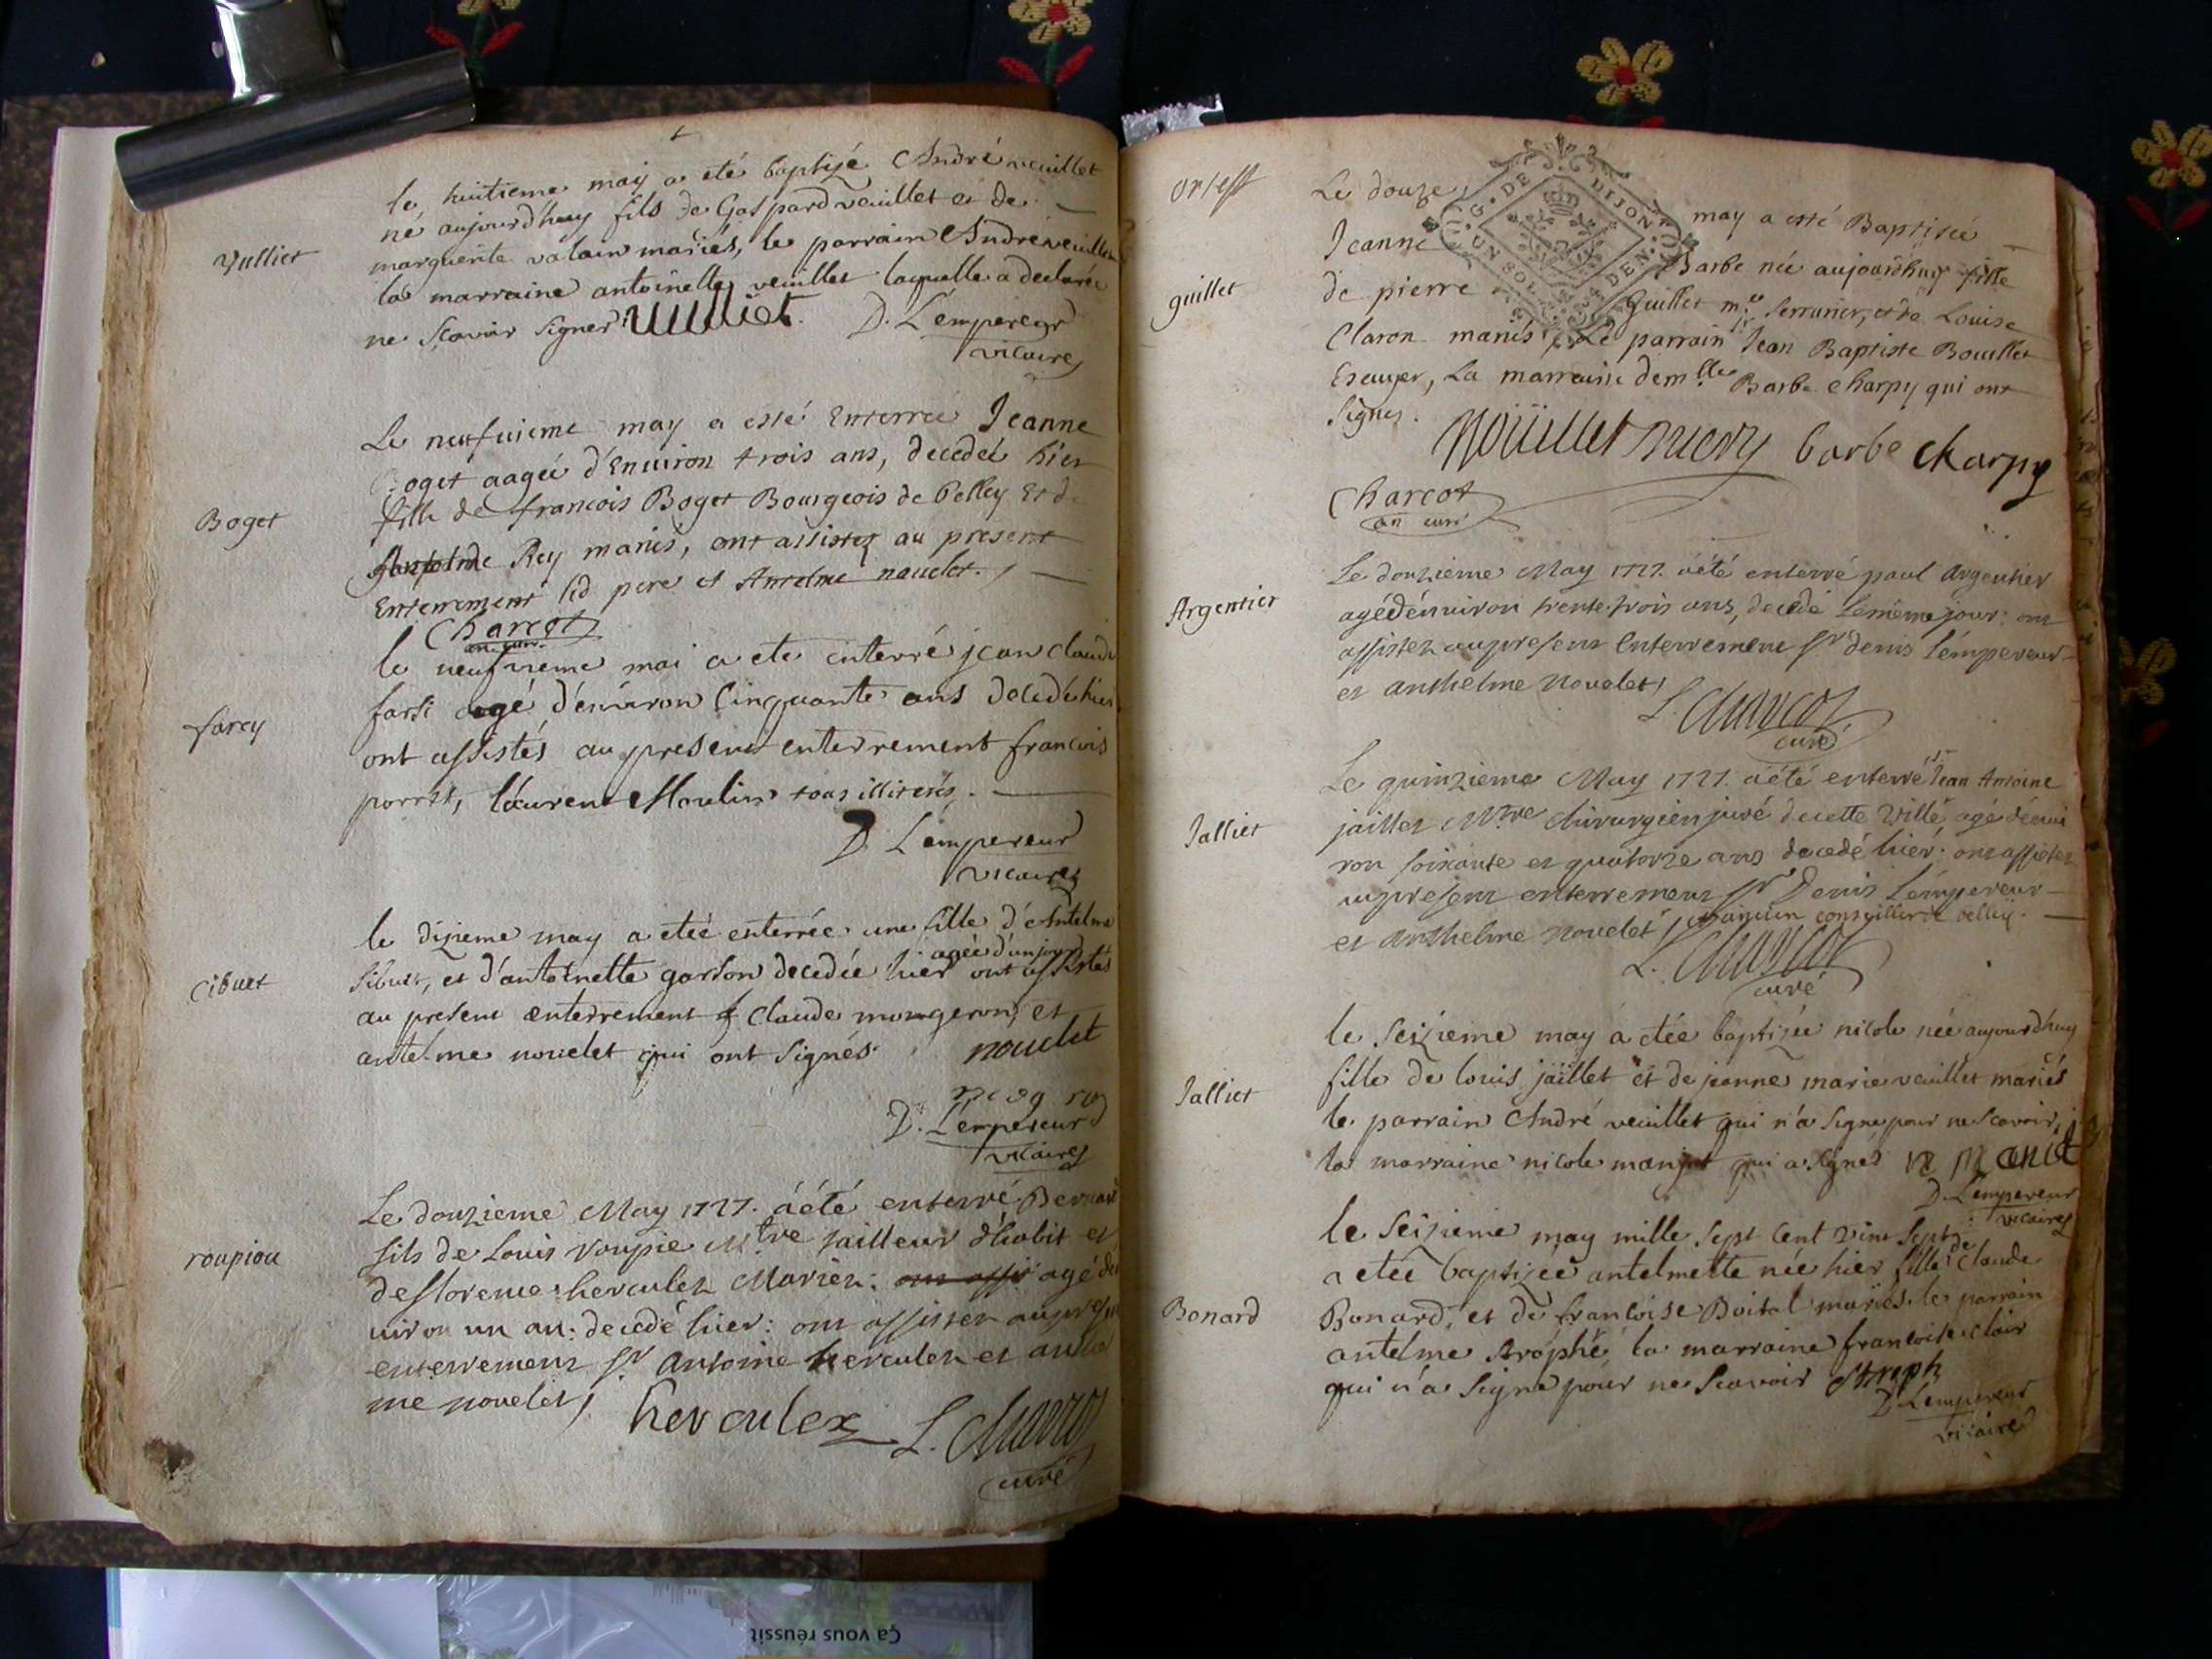 le huitieme may a eté baptizé André veuillet
né aujourdhuy fils de Gaspard veuillet et de
vulliet
marguerite valain mariés, le parrain André veuillet
la marraine antoinette veuillet laquelle a declaré
ne scavoir signer vulliet. D. Lempereur
vicaire
Le neufuieme may a esté Enterreé Jeanne
Boget aagée d'Enuiron trois ans, decedeé hier
Boget
fille de francois Boget Bourgeois de belley Et de
Rey mariés, ont assistez au present
Enterrement led pere et Antelme nouelet.
Charcot
le neufvieme mai a ete enterré jean claude
farci
farsi agé d'environ cinquante ans decedé hier
ont assistés au present enterrement francois
porret, laurent Moulin tous illiterés.
D. Lempereur
vicaire
le dizieme may a etée enterrée une fille d'Antelme
agée d'un jour
cibuet
sibuet, et d'antoinette garson decedée hier ont assistés
au present enterrement claude mongeron, et
antelme nouelet qui ont signés. nouelet
D. Lempereur
vicaire
Le douzieme May 1727. a été enterré Bernard
roupiou
fils de Louis roupie Mtre tailleur d'habit et
de florence herculez Mariez: agé den
uiron un an: decedé hier: ont assistez au present
enterrement Sr. Antoine herculez et antel
me nouelet
herculez L. Charcot
curé
Le douze may a esté Baptiseé
G. DE DIJON
UN SOL DEN.
Jeanne Barbe neé aujourdhuy fille
guillet
de pierre Guillet me. Serrurier, et de Louise
Claron mariés, Le parrain Jean Baptiste Bouillet
Escuyer, La marraine demlle Barbe Charpy qui ont
signes.
barbe charpy
Charcot
an. curé
Le douzieme May 1727. a été enterré paul Argentier
Argentier
agé d'enuiron trente trois ans, decedé le même jour: ont
assistez au present enterrement Sr denis l'empereur
et anthelme Nouelet
L. Charcot
curé
Le quinzieme May 1727. a été enterré Sr Jean Antoine
Jalliet
jaillet Mtre chirurgien juré de cette ville agé d'enui
ron soixante et quatorze ans decedé hier: ont assistez
au present enterrement Sr Denis Lempereur
et Anthelme Nouelet conseiller de belley.
L. Charcot
curé
le seizieme may a etée baptizée nicole née aujourdhuy
Jalliet
fille de louis jaillet et de jeanne marie veuillet mariés
le parrain André veuillet qui n'a signé pour ne scavoir,
la marraine nicole qui a signé
D. Lempereur
vicaire
le seizieme may mille sept cent vint sept
a etée baptizée antelmette née hier fille de claude
Bonard
Bonard, et de francoise Boital mariés. le parrain
antelme strophé, la marraine francoise clair
qui n'a signé pour ne scavoir
D. Lempereur
vicaire
Ça vous réussit